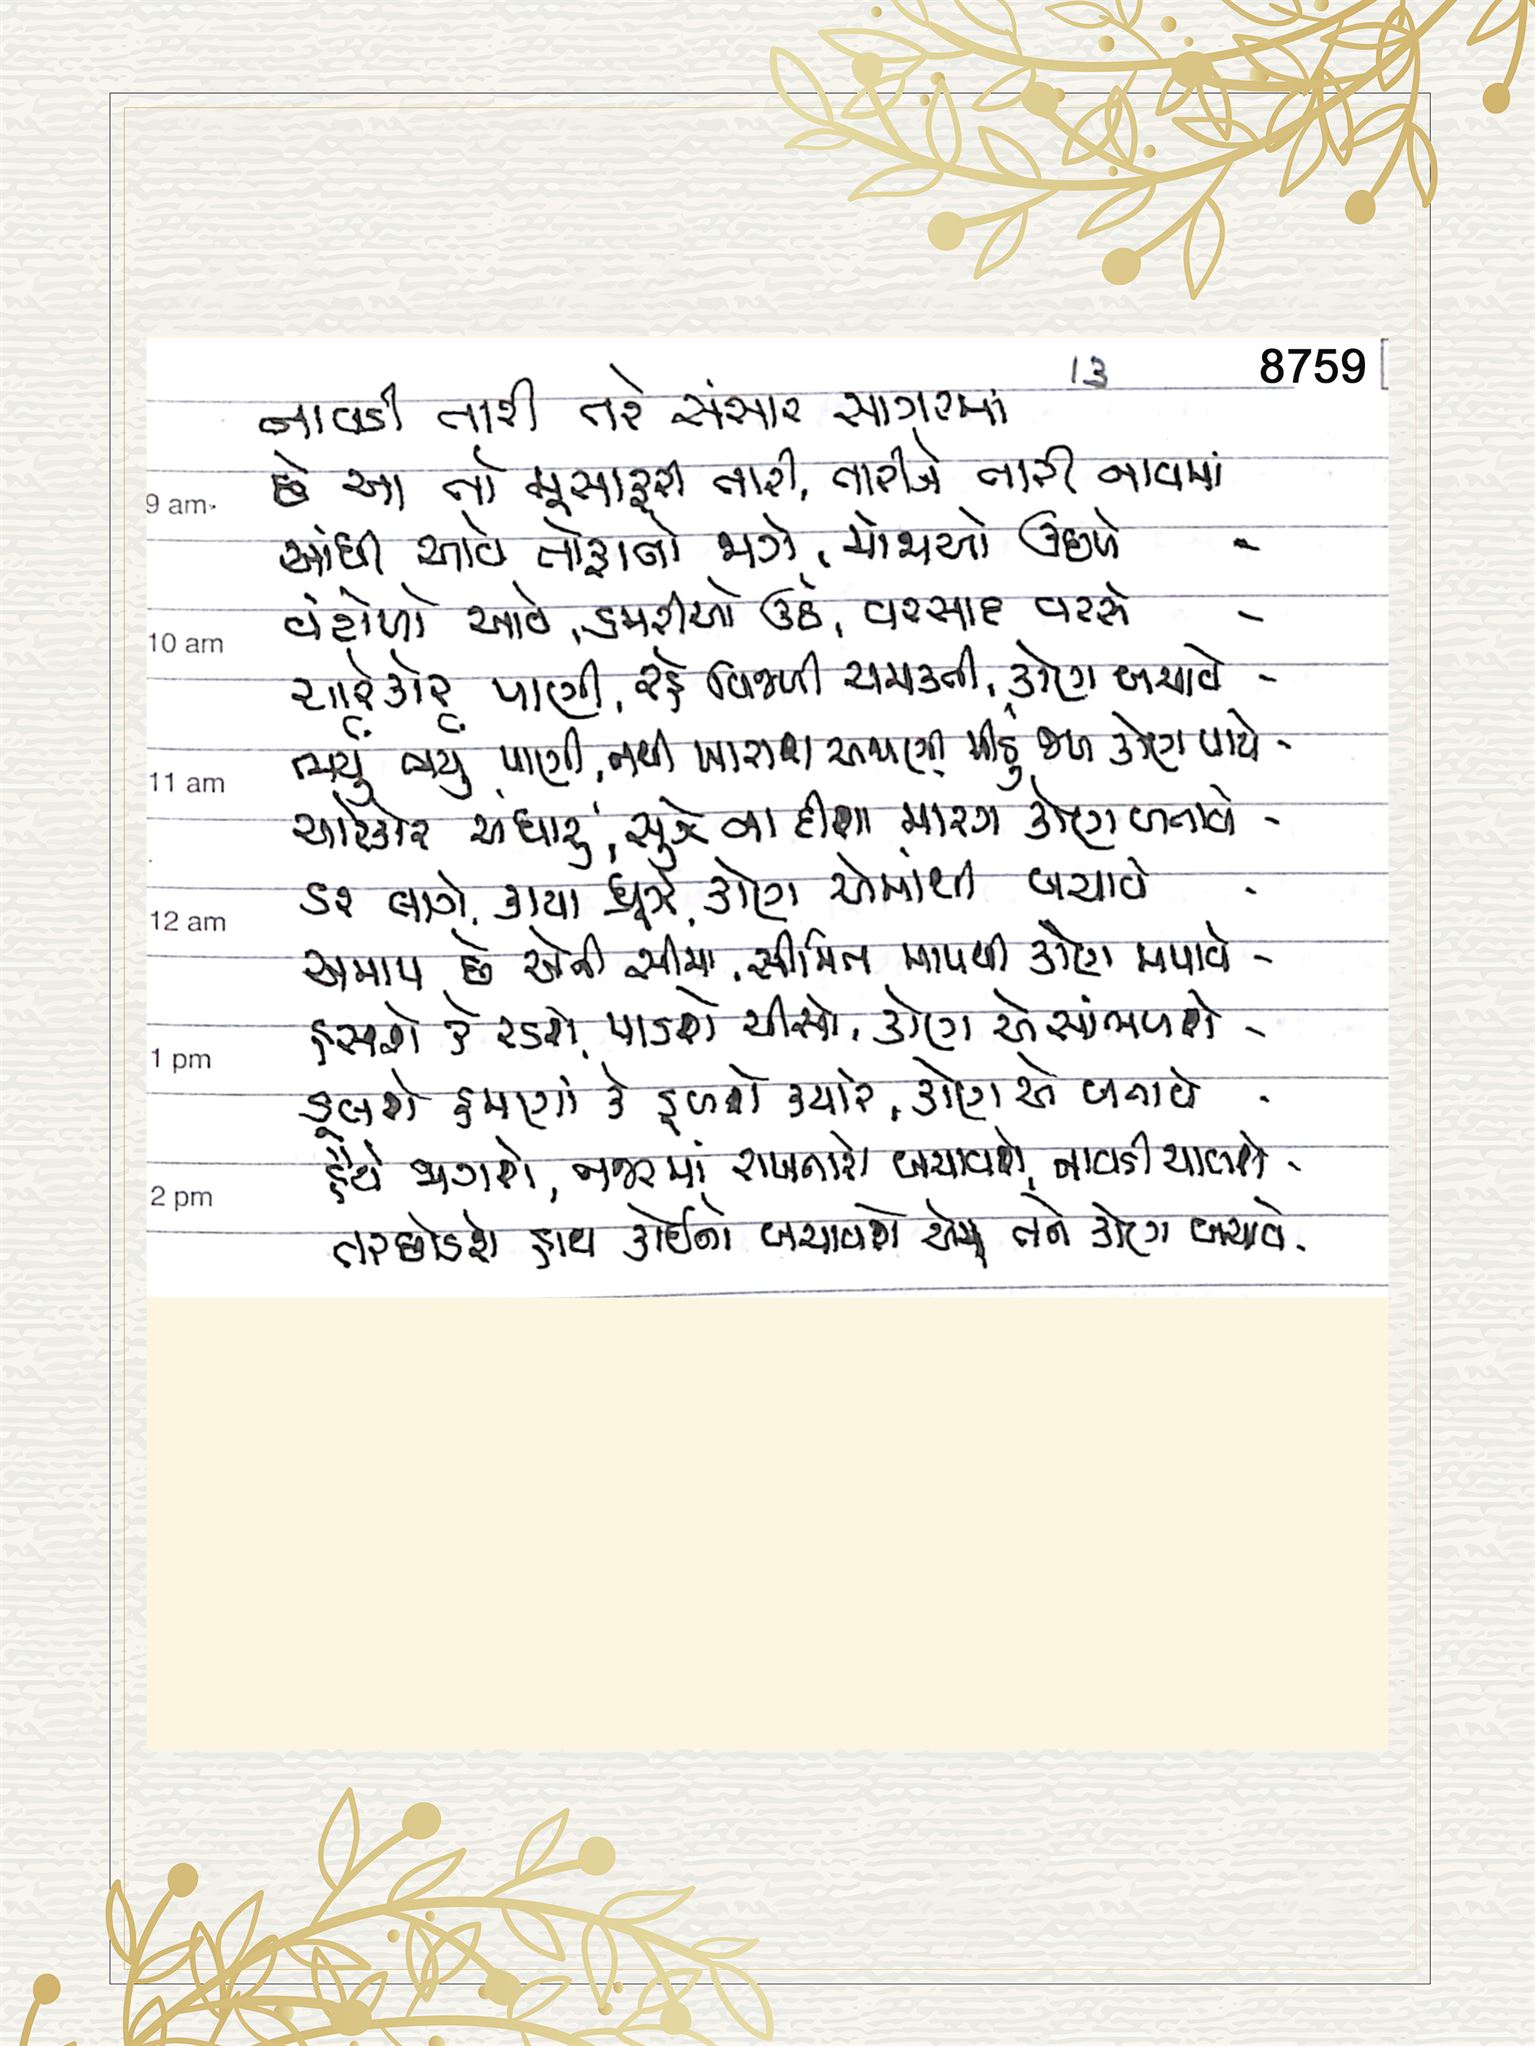 13 8759
નાવડી તારી તરે સંસાર સાગરમાં
છે આ તો મૂસાફરી તારી, તારીજે તારી નાવમાં
9 am
આંધી આવે તોફાનો જાગે, મોજાઓ ઉછળે -
વંટોળો આવે, ડમરીઓ ઉઠે, વરસાદ વરસે -
10 am
ચારેકોર પાણી, રહે વિજળી ચમકતી, કોણ બચાવે -
ભર્યું ભર્યું પાણી, નથી ખારાશ અજાણી મીઠું જળ કોણ પાયે -
11 am
ચારેકોર અંધારું, સુઝે ના દીશા મારગ કોણ બતાવે -
ડર લાગે, કાયા ધ્રૂજે, કોણ એમાંથી બચાવે -
12 am
અમાપ છે એની સીમા, સીમિત માપથી કોણ મપાવે -
હસશે કે રડશે, પાડશે ચીસો, કોણ એ સાંભળશે -
1 pm
ડૂબશે હમણાં કે ડૂબશે ક્યારે, કોણ એ બતાવે -
હૈયે જાગશે, નજરમાં રાખનારો બચાવશે, નાવડી ચાલશે -
2 pm
તરછોડશે હાથ કોઈનો બચાવશે તને કોણ બચાવે -